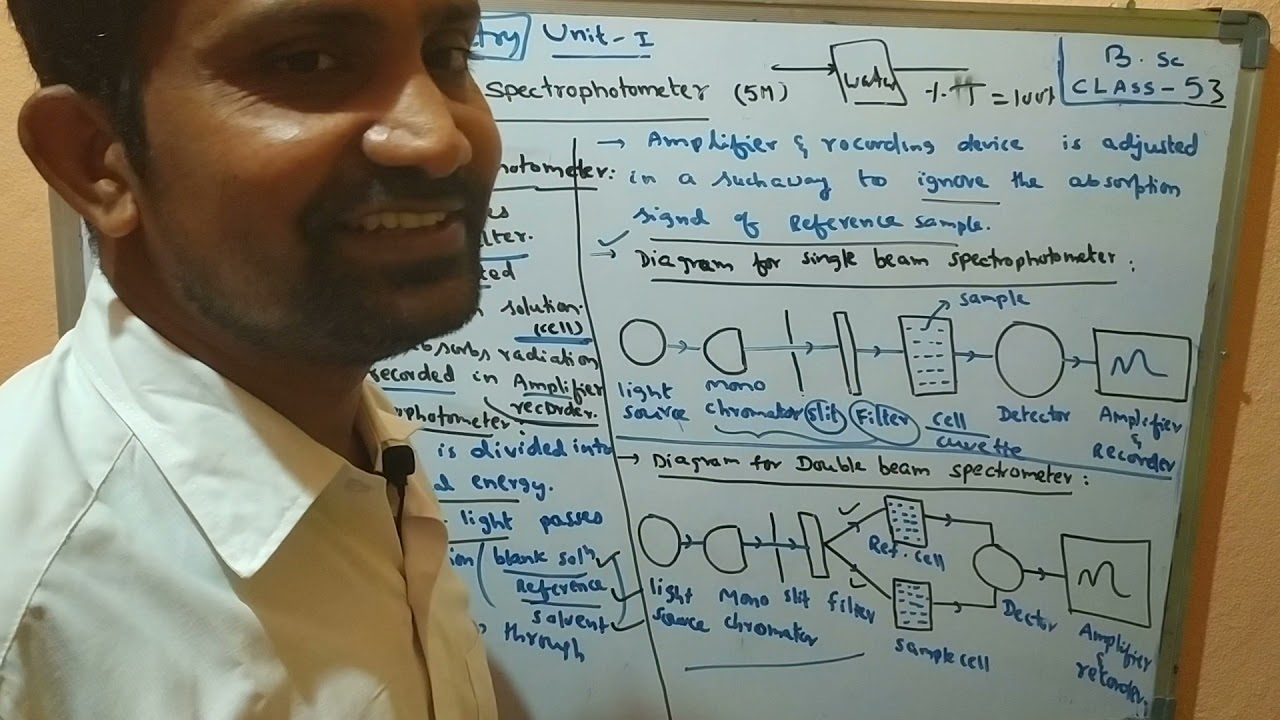 try Unit-I
spectrophotometer (5M)
water
%T = 100%
B.Sc
CLASS-53
hotometer:
es
lter.
ted
solution.
(cell)
absorbs radiation
recorded in Amplifier
recorder.
photometer:
is divided into
energy.
light passes
ion (blank solⁿ
Reference
solvent
through
→ Amplifier & recording device is adjusted
in a suchaway to ignore the absorption
signal of Reference sample.
→ Diagram for single beam spectrophotometer:
sample
light
source
mono
chromator
slit
Filter
cell
cuvette
Detector
Amplifier
&
Recorder
→ Diagram for Double beam spectrometer:
Ref. cell
light
source
Mono
chromator
slit
filter
sample cell
Dector
Amplifier
&
recorder.